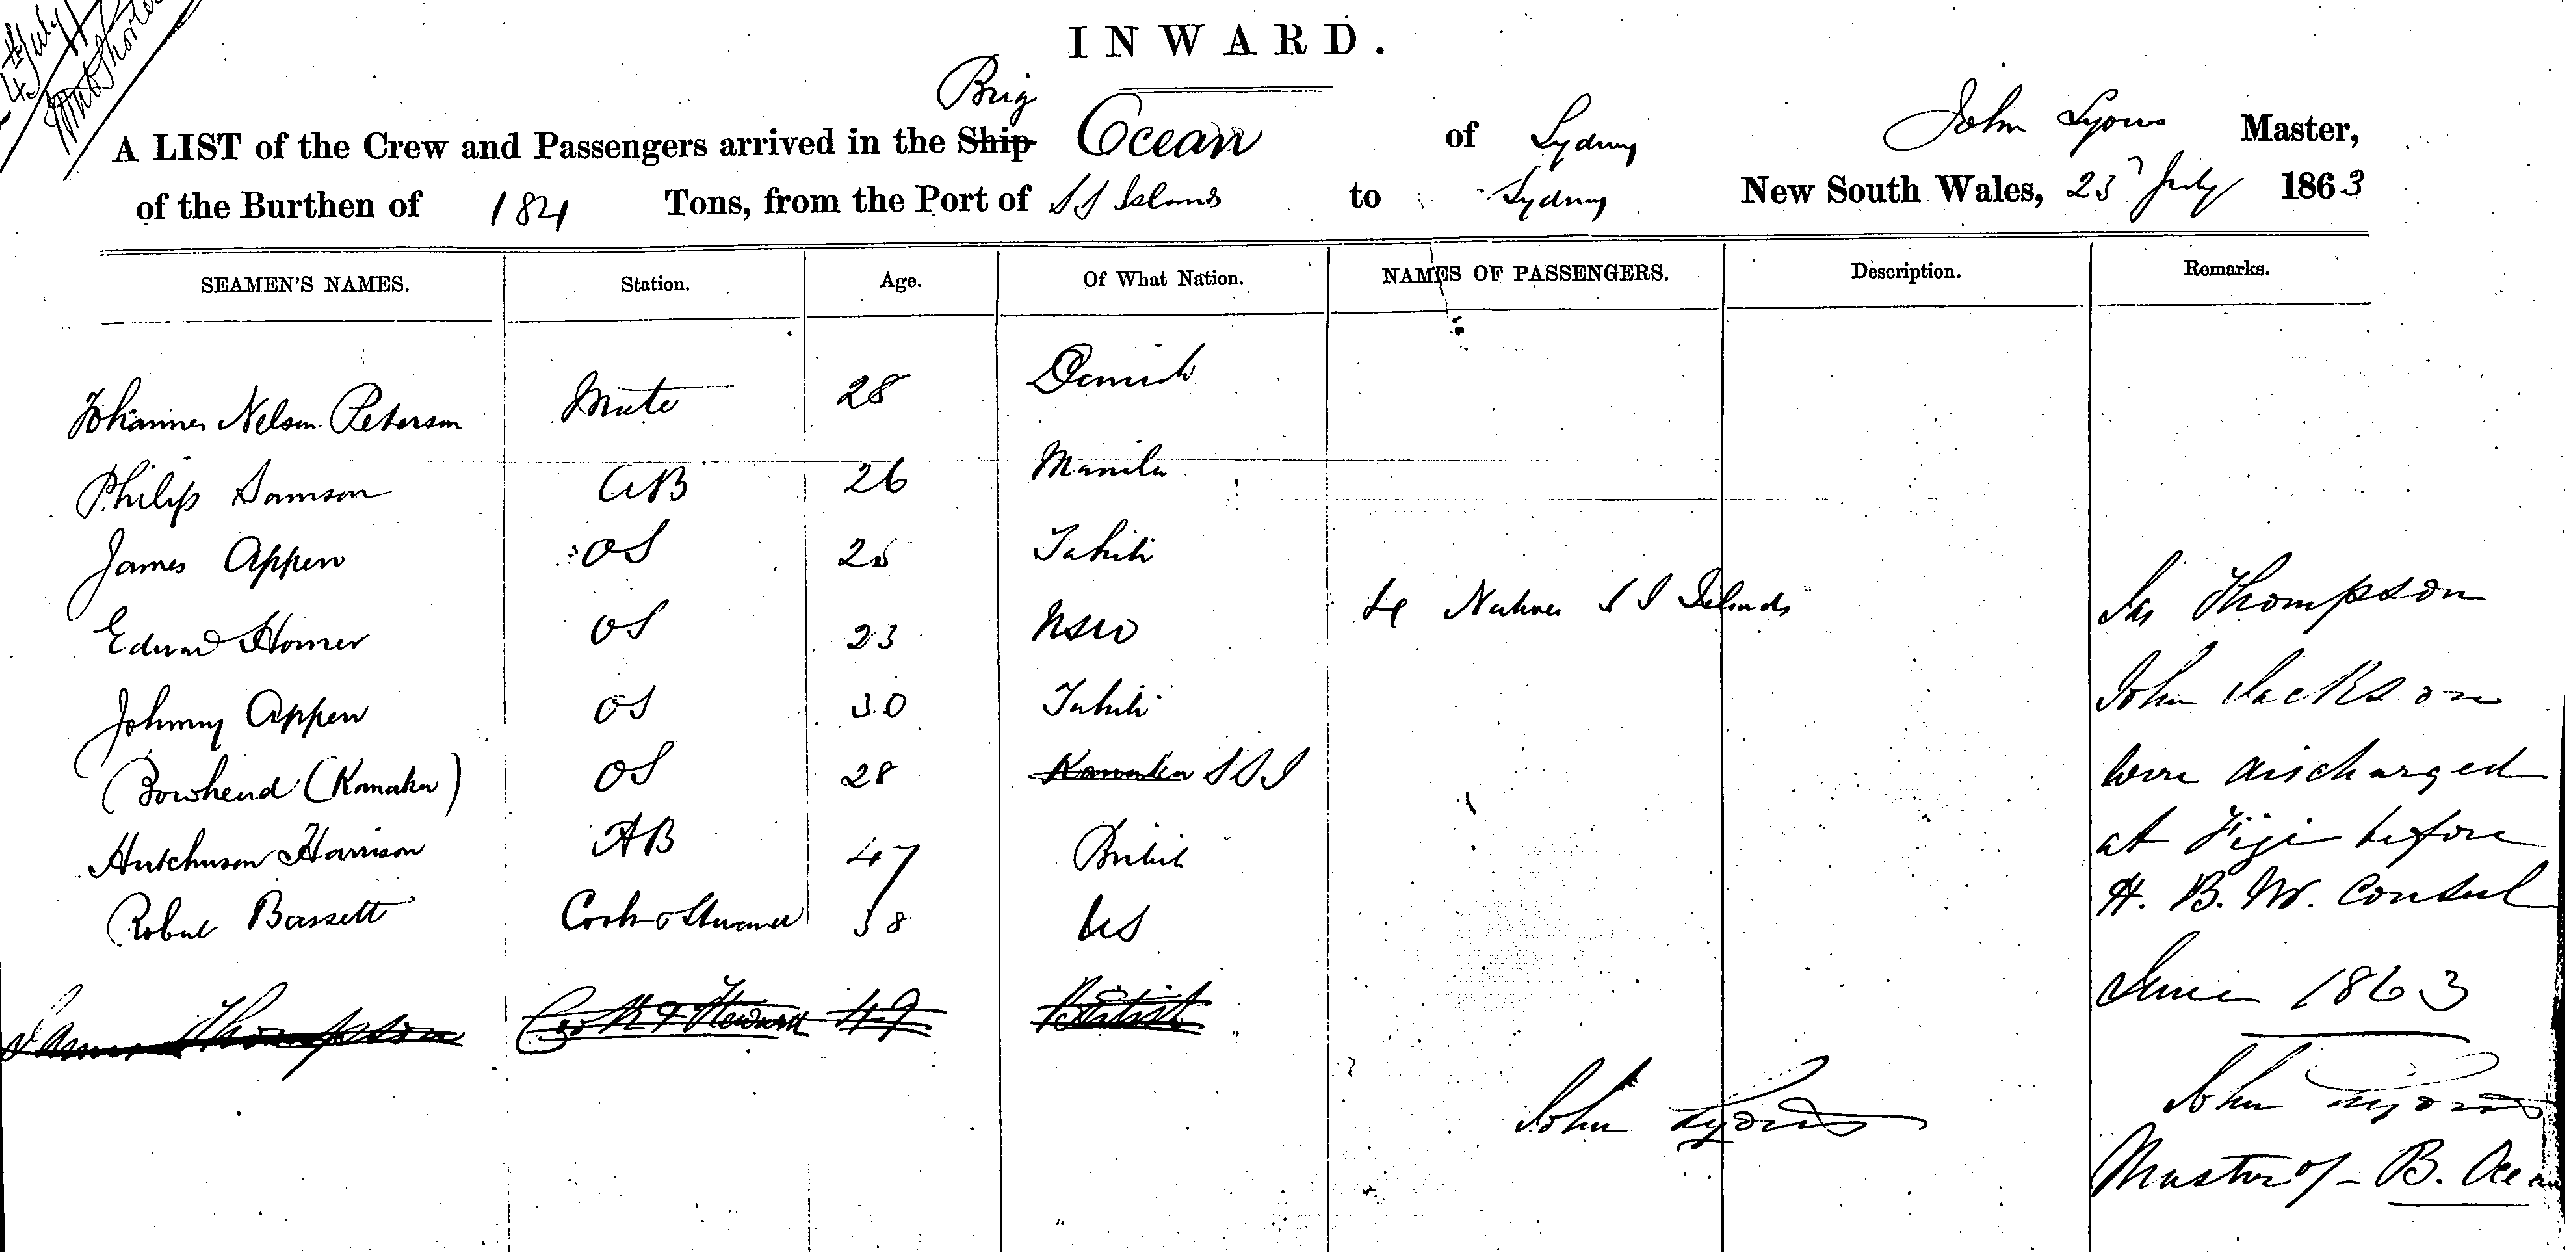 4th July
INWARD.
Brig
A LIST of the Crew and Passengers arrived in the Ship Ocean of Sydney John Lyons Master,
of the Burthen of 184 Tons, from the Port of S S Islands to Sydney New South Wales, 23 July 1863
SEAMEN'S NAMES. Station. Age. Of What Nation. NAMES OF PASSENGERS. Description. Remarks.
Johannes Nelson Peterson Mate 28 Danish
Philip Samson AB 26 Manila
James Appen OS 25 Tahiti
4 Natives S S Islands Jas Thompson
Edward Homer OS 23 NSW
Johnny Appen OS 30 Tahiti John Jackson
Bowhead (Kanaka) OS 28 Kanaka S S I were discharged
Hutchuson Harrison AB 47 British at Fiji before
Robert Bassett Cook & Steward 38 US H. B. M. Consul
James Thompson Cook & Steward 47 British June 1863
John Lyons John Lyons
Master of B. Ocean